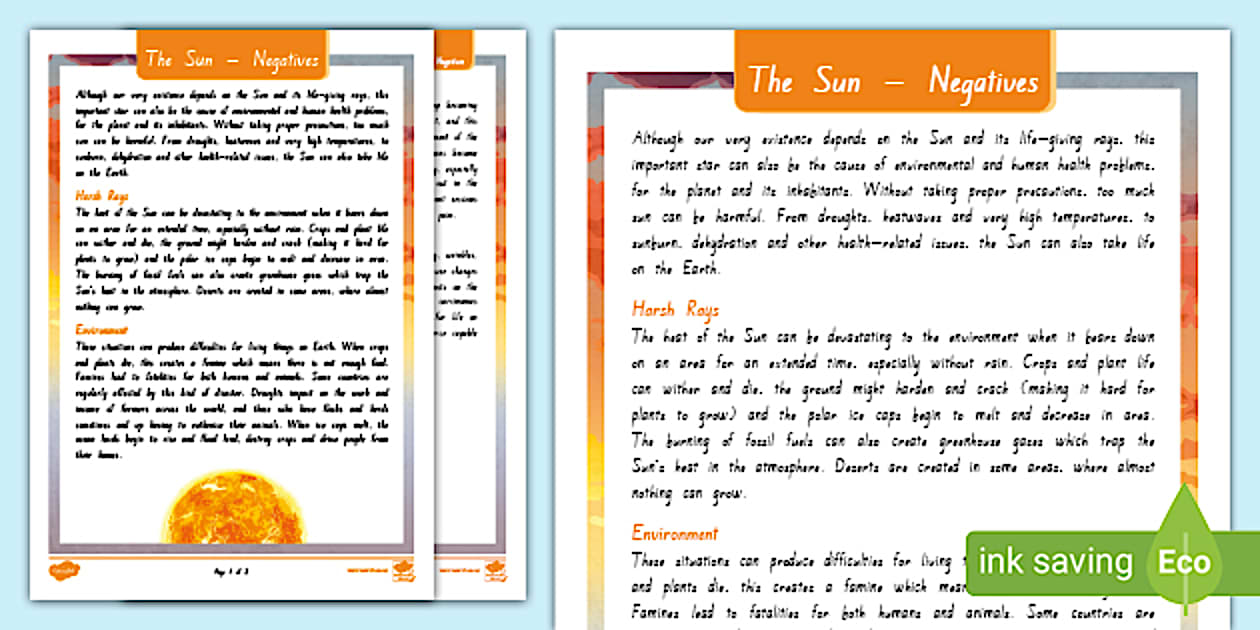 The Sun – Negatives
Although our very existence depends on the Sun and its life-giving rays, this
important star can also be the cause of environmental and human health problems,
for the planet and its inhabitants. Without taking proper precautions, too much
sun can be harmful. From droughts, heatwaves and very high temperatures, to
sunburn, dehydration and other health-related issues, the Sun can also take life
on the Earth.
Harsh Rays
The heat of the Sun can be devastating to the environment when it bears down
on an area for an extended time, especially without rain. Crops and plant life
can wither and die, the ground might harden and crack (making it hard for
plants to grow) and the polar ice caps begin to melt and decrease in area.
The burning of fossil fuels can also create greenhouse gases which trap the
Sun's heat in the atmosphere. Deserts are created in some areas, where almost
nothing can grow.
Environment
These situations can produce difficulties for living things on Earth. When crops
and plants die, this creates a famine which means there is not enough food.
Famines lead to fatalities for both humans and animals. Some countries are
regularly affected by this kind of disaster. Droughts impact on the work and
income of farmers across the world, and those who have flocks and herds
sometimes end up having to euthanise their animals. When ice caps melt, the
ocean levels begin to rise and flood land, destroy crops and drive people from
their homes.
Page 1 of 2
The Sun – Negatives
Although our very existence depends on the Sun and its life-giving rays, this
important star can also be the cause of environmental and human health problems,
for the planet and its inhabitants. Without taking proper precautions, too much
sun can be harmful. From droughts, heatwaves and very high temperatures, to
sunburn, dehydration and other health-related issues, the Sun can also take life
on the Earth.
Harsh Rays
The heat of the Sun can be devastating to the environment when it bears down
on an area for an extended time, especially without rain. Crops and plant life
can wither and die, the ground might harden and crack (making it hard for
plants to grow) and the polar ice caps begin to melt and decrease in area.
The burning of fossil fuels can also create greenhouse gases which trap the
Sun's heat in the atmosphere. Deserts are created in some areas, where almost
nothing can grow.
Environment
These situations can produce difficulties for living
and plants die, this creates a famine which
Famines lead to fatalities for both humans and animals. Some countries are
ink saving
Eco